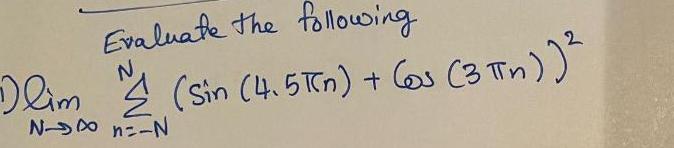 Evaluate the following
1) lim N→∞ N Σ n=-N (Sin (4.5πn) + Cos (3πn))²